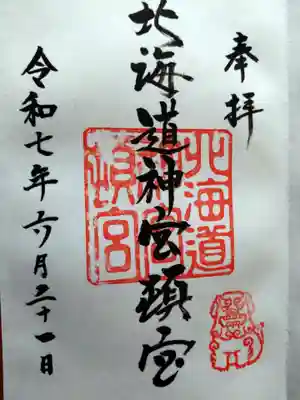 奉拝
北海道神宮頓宮
令和七年六月二十一日
北海道
神宮
頓宮